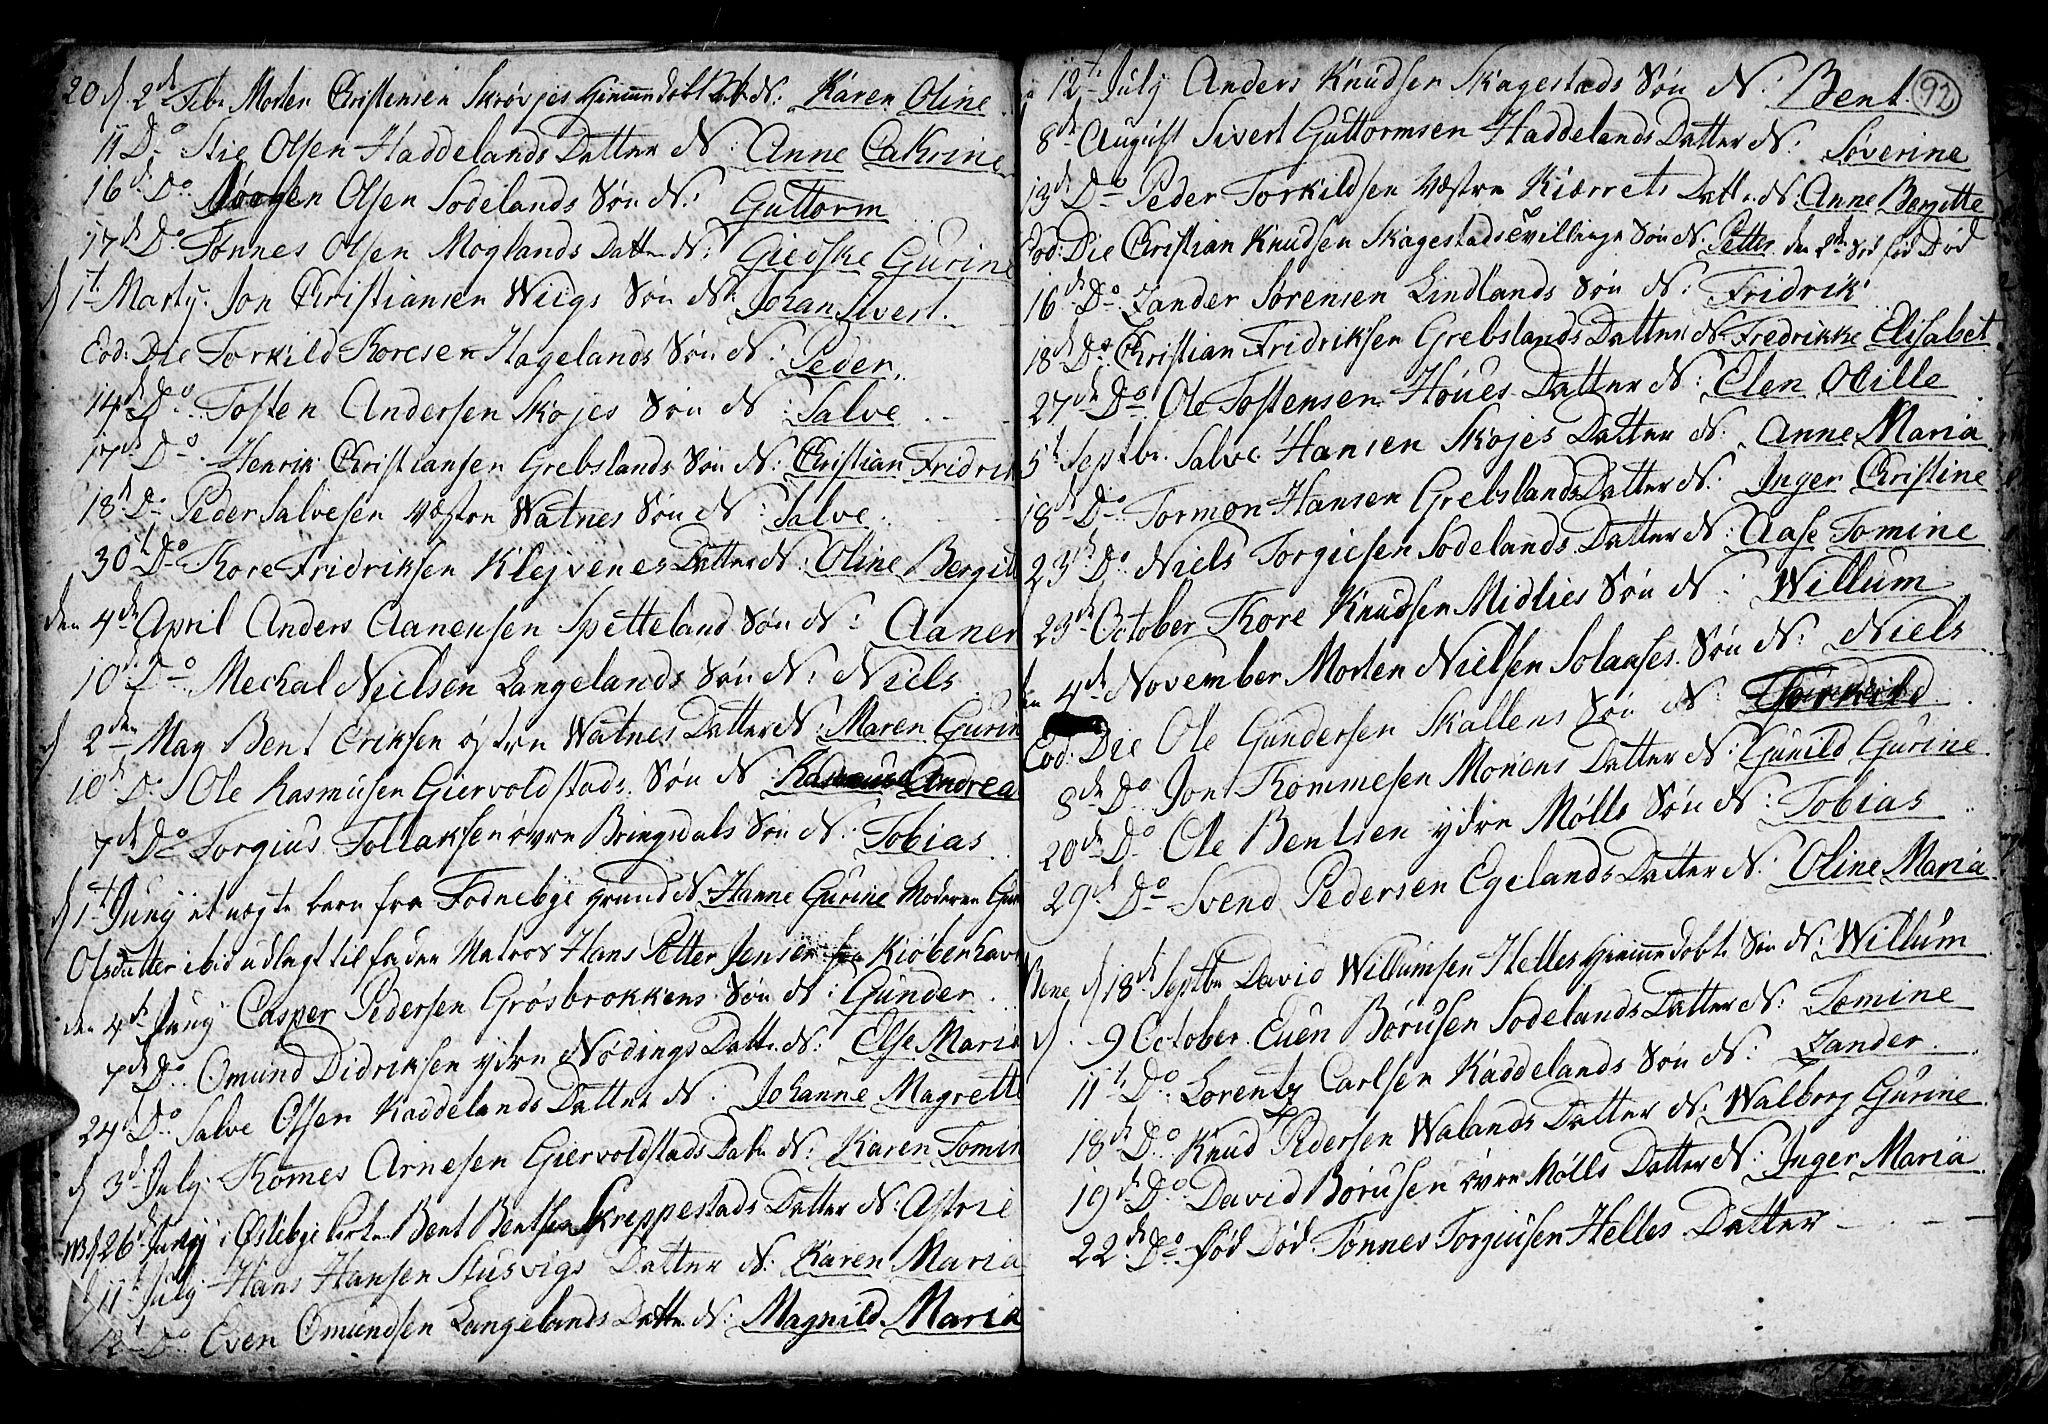 20 d. 2d Febr Morten Christensen Skrøvjes Hjemmedøbt Datt. N: Karen Oline
11 Do Stie Olsen Haddelands Datter N: Anne Catrine
16d. Do Jørgen Olsen Sodelands Søn N: Guttorm
17d. Do Tønnes Olsen Moglands Datter N: Giedske Gurine
d 1t Marty Jon Christiansen Wiigs Søn N: Johan Sivert
Eod: Die Torkild Toresen Hagelands Søn N: Peder
14d Do Tosten Andersen Skøjes Søn N: Salve
17d Do Henrik Christiansen Grebslands Søn N: Christian Fridrik
18d Do Peder Salvesen Vestre Watnes Søn N: Salve
30d Do Tore Fridriksen Klejvenes Datter N: Oline Bergit
den 4de April Anders Aanensen Spetteland Søn N: Aanen
10d Do Mechal Nielsen Langelands Søn N: Niels
d 2den May Bent Eriksen østre Watnes Datter N: Maren Gurin
10d Do Ole Rasmusen Giervoldstads Søn N: Andrea
7d Do Torgius Tollaksen øvre Bringsdals Søn N: Tobias
d 1t Juny et uægte barn fra Fodnebye grund N: Hanne Gurine Moderen
Olsdatter ibid udlagt til fader Matros Hans Petter Jensen fra Kiøbenhavn
den 4d Juny Casper Pedersen Grosbrokkens Søn N: Gunder
7d Do Omund Didriksen ydre Nødings Datt. N: Else Maria
24d Do Salve Olsen Kaddelands Datter N: Johanne Magrette
d 3d July Tomes Arnesen Giervoldstads Datr N: Karen Tomin
NB d 26d Juny i Østebye kirke Bent Bentsen Skreppestads Datter N: Astrie
d 11t July Hans Hansen Stusvigs Datter N: Karen Maria
12t Do Even Omundsen Langelands Datter N: Magnild Maria
92
12t July Anders Knudsen Skagestads Søn N: Bent
8d August Sivert Guttormsen Haddelands Datter N: Søverine
13d Do Peder Torkildsen Vestre Kiærrets Datt. N: Anne Bergitte
Eod: Die Christian Knudsen Skagestads tvillinge Søn N: Petter den 2den Søn fød Død
16d Do Zander Sørensen Lindlands Søn N: Fridrik
18d Do Christian Fridriksen Grebslands Datter N: Fredrikke Elisabet
27d Do Ole Tostensen Høues Datter N: Elen Otille
5t Septbr Salve Hansen Skøjes Datter N: Anne Maria
18d Do Tormon Hansen Grebslands Datter N: Inger Christine
23d Do Niels Torgiesen Sodelands Datter N: Aase Tomine
23d October Tore Knudsen Midlies Søn N: Willum
den 4d November Morten Nielsen Solaases Søn N: Niels
Eod: Die Ole Gundersen Skallens Søn N:
8d Do Jon Tommesen Moнens Datter N: Gunild Gurine
20d Do Ole Bentsen ydre Mølls Søn N: Tobias
29d Do Svend Pedersen Egelands Datter N: Oline Maria
Bene d 18d Septbr David Willumsen Helles Hjemmedøbt Søn N: Willum
d. 9 October Euen Børusen Sodelands Datter N: Tomine
11t Do Lorentz Carlsen Kaddelands Søn N: Zander
18d Do Knud Pedersen Walands Datter N: Walborg Gurine
19d Do David Børusen øvre Mølls Datter N: Inger Maria
22d Do fød Død Tønnes Torgiusen Helles Datter